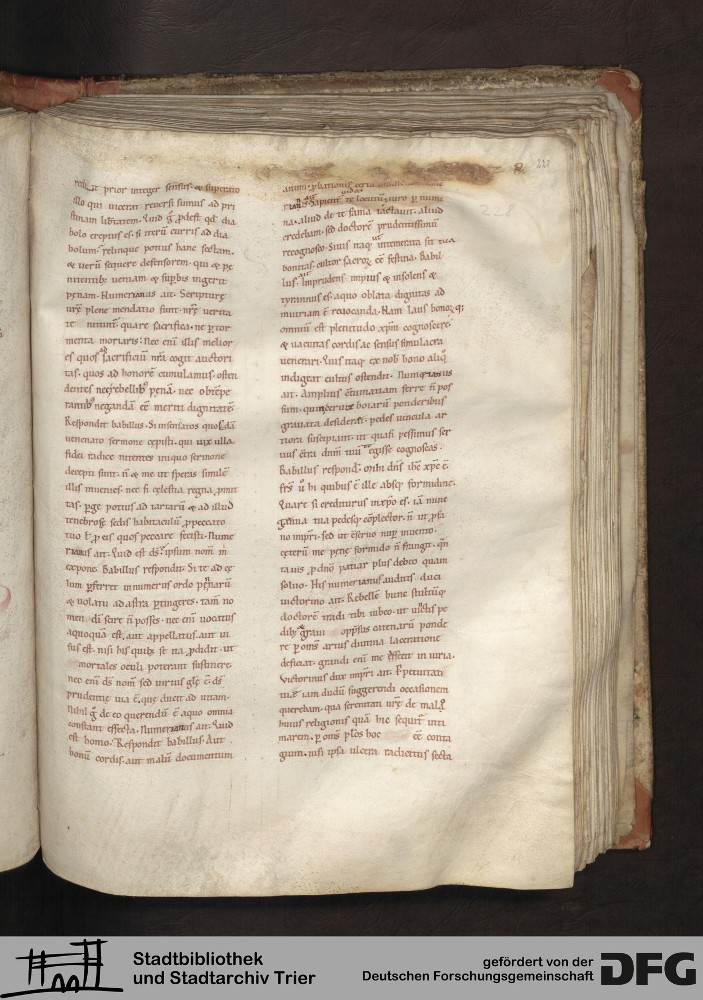 prior integer sensus. & superatio
illo qui vicerat reversi sumus ad pri
stinam libtatem. Quid g̊ ꝓdest qđ dia
bolo ereptus es. si iterū curris ad dia
bolum. relinque potius hanc sectam.
& verū sequere defensorem. qui & pe
nitentibꝫ veniam & supbis ingerit
pęnam. Numerianus ait. Scripturę
urę plene mendatio sunt. nrę verita
te quare sacrifica. ne ꝑ tor
menta moriaris. Nec eni illis melior
es quos ad sacrificiū nr̄a cogit auctori
tas. quos ad honorē cumulamus. osten
dentes nec rebellibꝫ pęnā. nec obtēpe
rantibꝫ negandā eē meriti dignitatē.
Respondit babillus. Si insensatos quosdā
venenato sermone cepisti. qui
fidei radice nitentes iniquo sermone
decepti sunt. n̄ & me ut speras similē
illis invenies. nec si cęlestia regna ꝓmit
tas. ꝑge potius ad tartarū & ad illud
tenebrosę sedis habitaculū ꝓ peccato
tuo ł ꝓ eis quos peccare fecisti. Nume
rianus ait. Quid est ds̄. ipsum nom̄ m̄
expone. Babillus respondit. Si te ad cę
lum ꝑferret innumerus ordo pennarū
& volatu ad astra ꝑtingeres. tam̄ no
men dī scire n̄ posses. nec enī vocatus
a quoquā est. aut appellatus aut vi
sus est. nisi his quibꝫ se ita ꝓdidit. ut
mortales oculi poterant sustinere
nec enī ds̄ nom̄ sed virtus glę ē. ds̄
prudentię via ē. quę ducit ad vitam.
Nihil g̊ de eo querendū ē a quo omnia
constant effecta. Numerianus ait. Quid
est homo. Respondit babillus. Aut
bonū cordis. aut malū documentum
sapient te locutū. iuro ꝑ nume
na. aliud de te fama iactavit. aliud
credebam. sed doctorē prudentissimū
recognosco. Sitis itaqꝫ ut intemerata sit tua
bonitas. cultor sacroꝝ cē festina. Babil
lus ait. Imprudens. impius & insolens &
tyrannus es. a quo oblata dignitas ad
iniuriam ē revocanda. Nam laus bonoꝝ qꝫ
omniū est plenitudo xp̄m cognoscere
& vacuitas cordis ac sensus simulacra
venerari. Quis itaqꝫ ex nob̄ bono aliq̊
indigeat cultus ostendit. Numerianus
ait. Amplius cōtumatiam ferre n̄ pos
sum. ponderibus
gravata desiderāt. pedes vincula ar
tiora suscipiant. ut quasi pessimus ser
vus cōtra dnm̄ tuū te egisse cognoscas.
Babillus respond̄. mihi dn̄s ihc̄ xp̄c ē.
frs̄ ů hi quibus ē ille absqꝫ formidine.
Quare si crediturus in xp̄o es. iā nunc
genua tua pedesqꝫ cōplector. n̄ ut ꝓ sa
no impri. sed ut cservo nup̄ invento.
cęterū me pęnę formido n̄ frangit. qn̄
tavis ꝓ dn̄o patiar plus debeo quam
solvo. His numerianus auditis. duci
victorino ait. Rebellē hunc stultūqꝫ
doctorē tradi tibi iubeo. ut
gravi oppssus catenarū ponde
re ꝑ oms̄ artus diutina laceratione
deficiat. grandi enī me effecit iniuria.
Victorinus dux impri ait. Ppetuitati
tuę iam dudū suggerendi occasionem
querebam. qua serenitati urę de malꝫ
huius religionis quā hic sequit̄ inti
marem. ꝑ oms̄ plebs hoc eē conta
gium. nisi ipsa ulcera radicitus secta
Stadtbibliothek
und Stadtarchiv Trier
gefördert von der
Deutschen Forschungsgemeinschaft
DFG